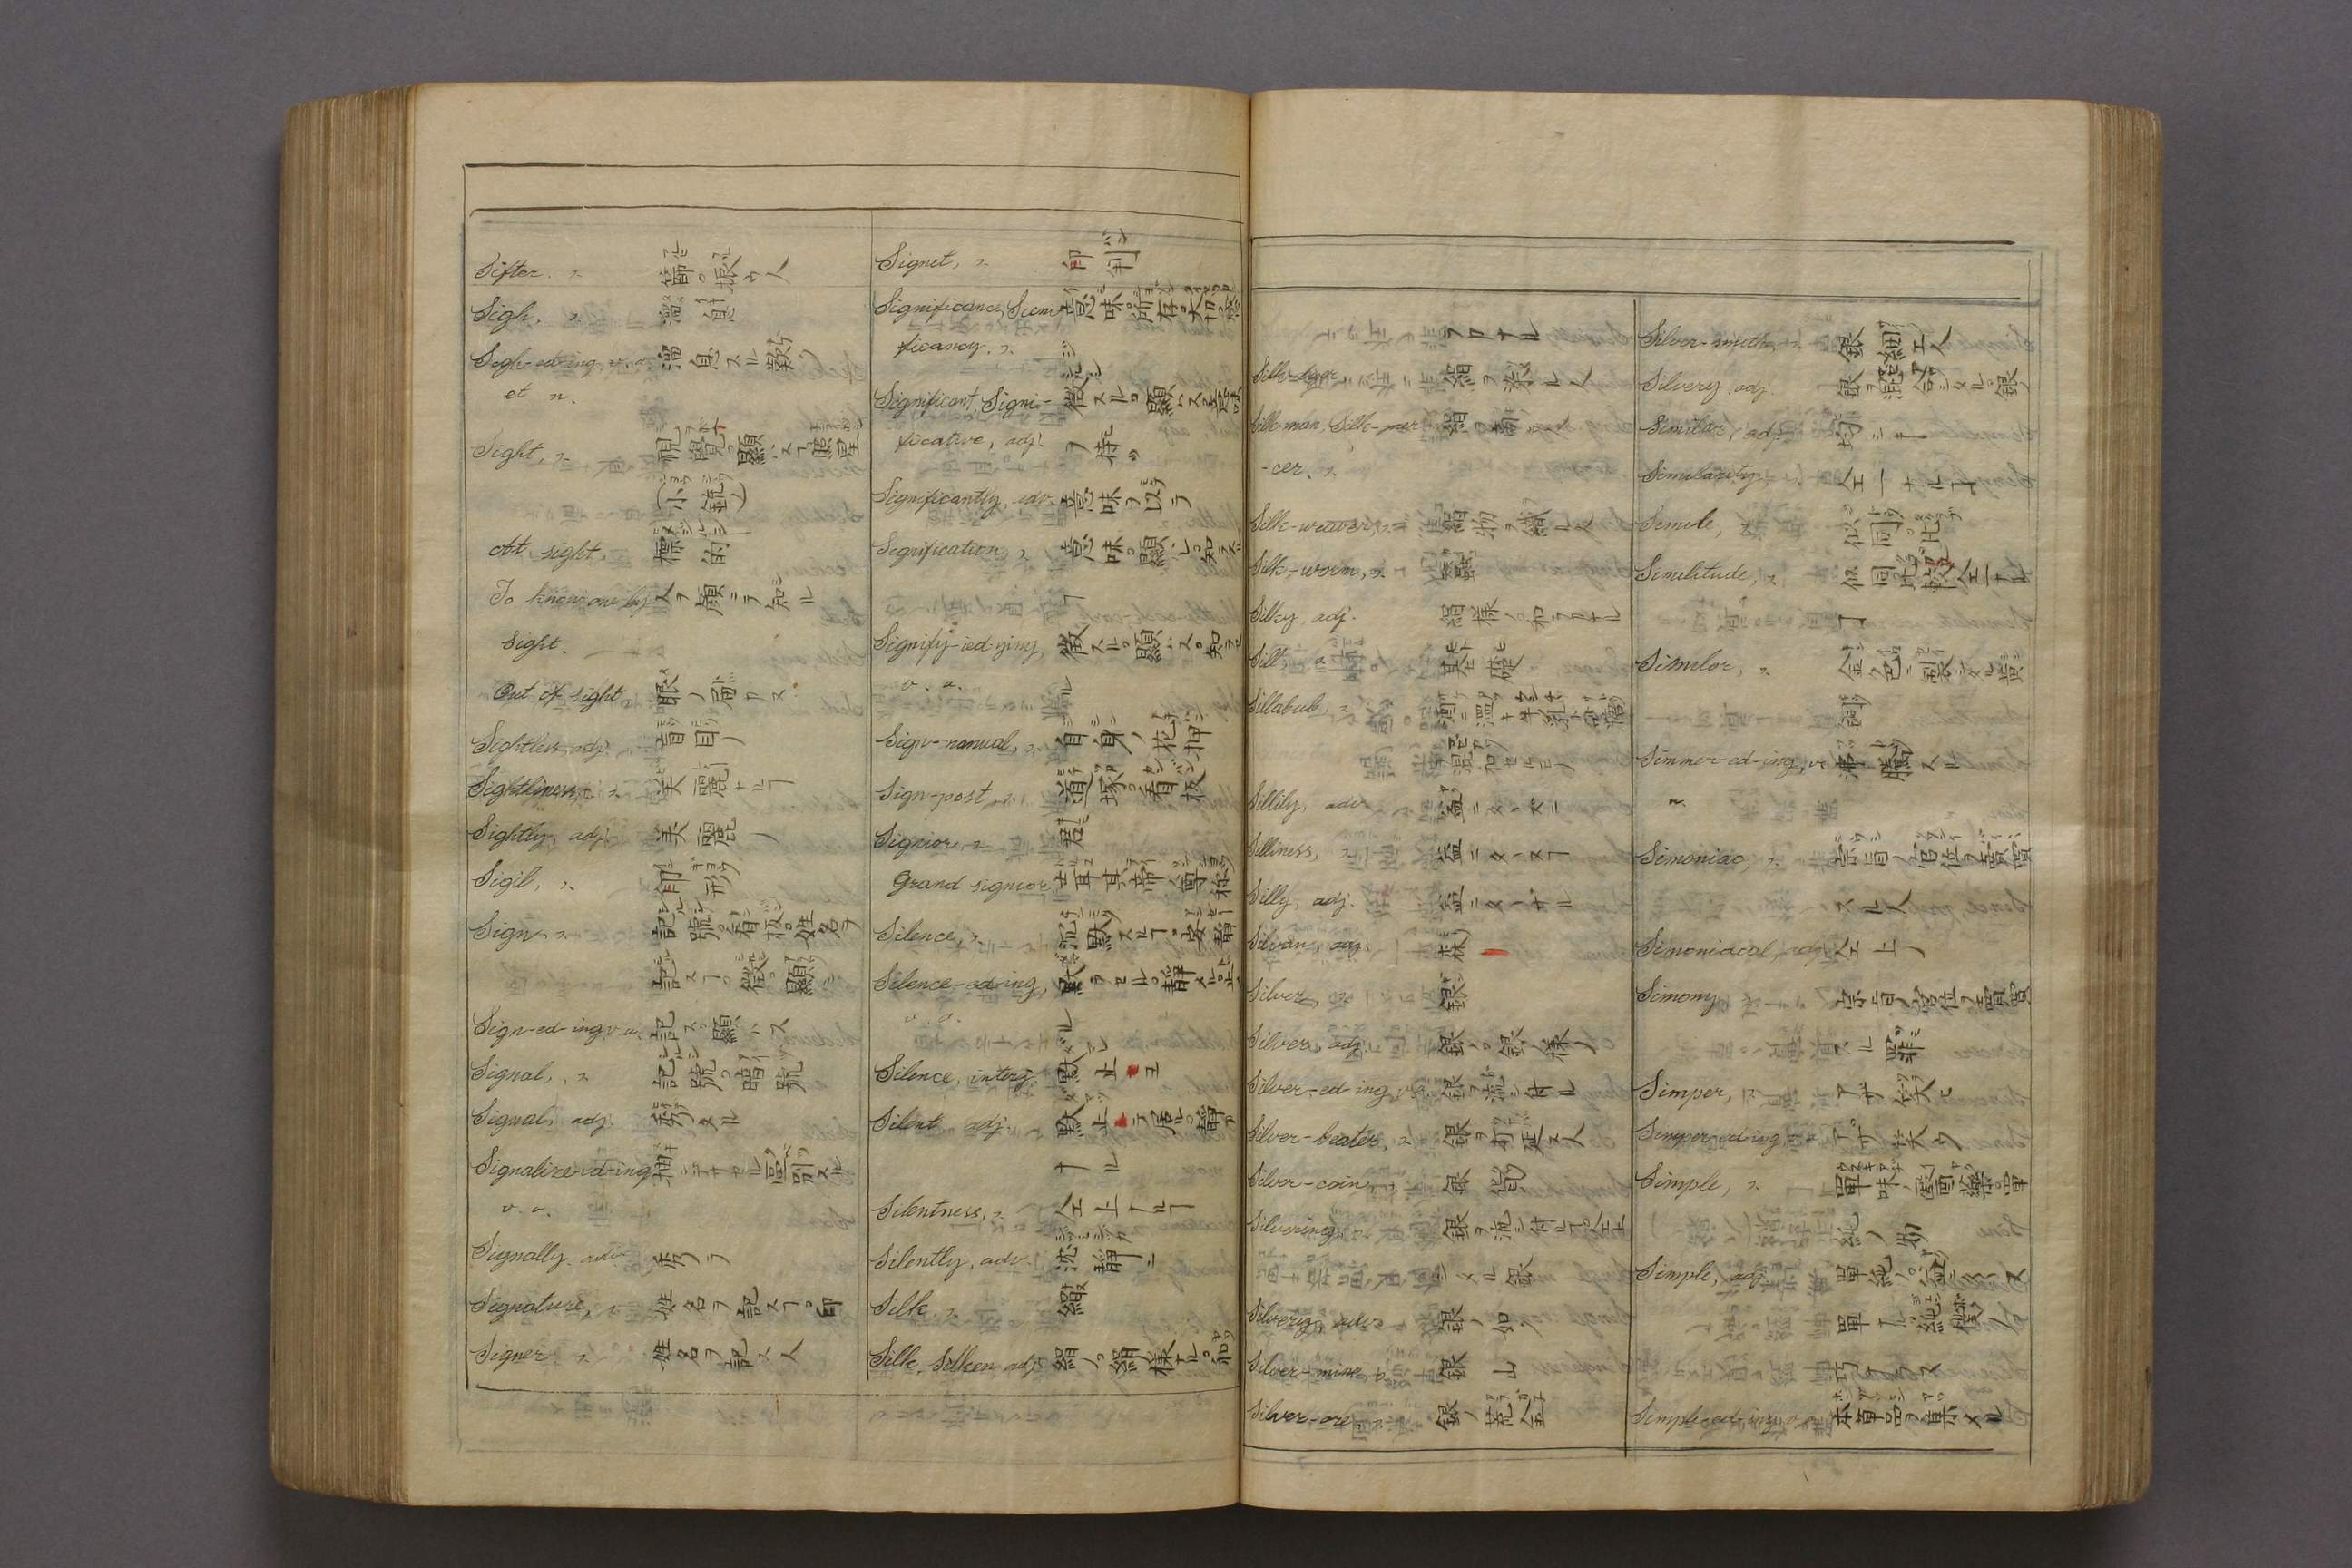 Sifter. n. 篩ヲ振フ人
Sigh. n. 溜息
Sigh-ed-ing, v. a. 溜息スル歎ク
et n.
Sight, n. 視覺。顯ハス了眼星
(小銃ノ)
At sight, 標的
To know one by 人ヲ顔ニテ知ル
sight.
Out of sight, 眼ノ届カヌ
Sightless, adj. 盲目ノ
Sightliness, n. 美麗ナル了
Sightly, adj. 美麗ノ
Sigil, n. 印形
Sign, n. 記號。看板。姓名ヲ
記ス了。徴。顯シ
Sign-ed-ing v. a. 記ス。顯ハス
Signal, n. 記號。暗號
Signal, adj. 秀タル
Signalize-ed-ing 抽ンデサセル區別スル
v. a.
Signally. adv. 秀テ
Signature, n. 姓名ヲ記ス了。印
Signer n. 姓名ヲ記ス人
Signet, n. 印判
Significance, Signi- 意味。所存。大切。
ficancy. n.
Significant, Signi- 徴スル。顯ハス意味
ficative, adj. ヲ持ツ
Significantly, adv. 意味ヲ以テ
Signification, n. 意味。顯シ。知ラス
了
Signify-ied-ying, 徴スル。顯ハス。知ラセ
v. a. ル
Sign-manual, n. 自身ノ花押
Sign-post, n. 道塚。看板
Signior, n. 君
Grand signior 土耳其帝ノ尊称
Silence, n. 沈默スル了。安靜
Silence-ed-ing, 默ラセル。靜メル。止
v. a. ル
Silence, interj. 默止ヨ
Silent, adj. 默止テ居ル。靜カ
ナル
Silentness, n. 仝上ナル了
Silently, adv. 沈靜ニ
Silk. n. 絹
Silk, Silken, adj. 絹ノ。絹ノ様ナル。和
ラカナル
Silk-dyer 絹ヲ染ル人
Silk-man, Silk-mer 絹商人
-cer. n.
Silk-weaver, n. 絹物ヲ織ル人
Silk-worm, n. 蠶
Silky, adj. 絹様ノ。和ラカナル
Sill, n. 基礎
Sillabub, n.
Sillily, adv.
Silliness, n.
Silly, adj.
Silvan, adj. 林ノ
Silver, 銀
Silver, adj. 銀ノ。銀ノ様ノ
Silver-ed-ing, v. a. 銀ヲ流シ付ル
Silver-beater, n. 銀ヲ打延ス人
Silver-coin, n. 銀貨
Silvering, 銀ヲ流シ付ル了。仝上
シタル銀
Silverly, adv. 銀ノ如ク
Silver-mine, n. 銀山
Silver-ore, n. 銀ノ荒金
Silver-smith, n. 銀細工人
Silvery, adj. 銀ヲ混合シタル。銀ノ
Similar, adj. 均シキ
Similarity, n. 仝一ナル了
Simile, 似。同ク。比
Similitude, n. 似。同。比較。仝一ナル
了
Similor, n. 金色ニ製シタル黄
銅
Simmer-ed-ing, v. 沸騰スル
n.
Simoniac, n. 宗旨ノ官位ヲ賣買
スル人
Simoniacal, adj. 仝上ノ
Simony 宗旨ノ官位ヲ賣買
スル罪
Simper, n. アザ笑ヒ
Simper-ed-ing, v. n. アザ笑フ
Simple, n. 單味ノ醫藥。單
純ノ物
Simple, adj. 單純ノ。
Simple-ed-ing v. n. 本草品ヲ集メル